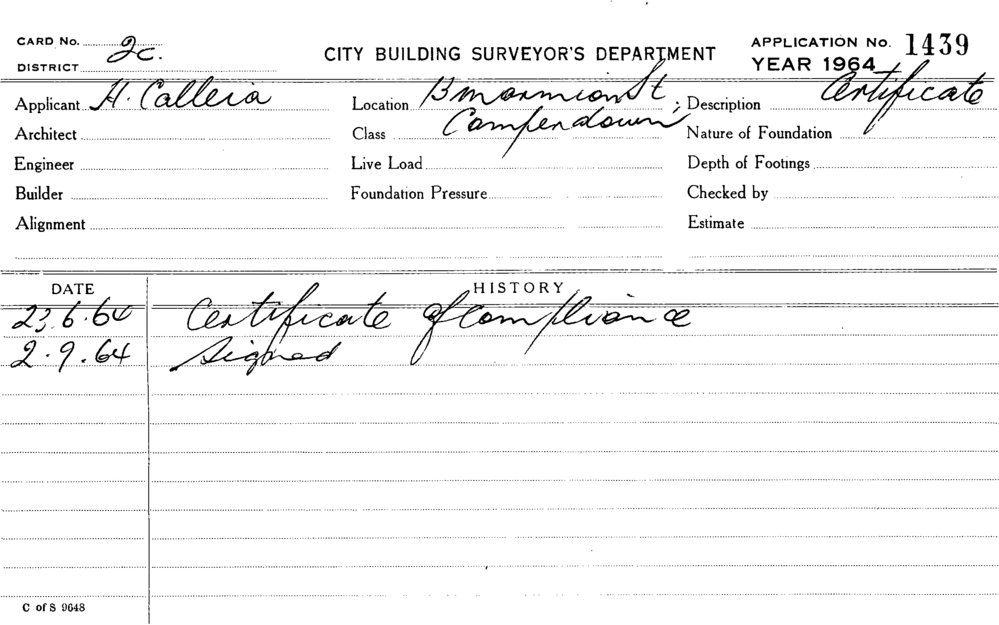 CARD No. 2c.
DISTRICT
CITY BUILDING SURVEYOR'S DEPARTMENT
APPLICATION No. 1439
YEAR 1964
Applicant H. Calleia
Location 13 Marmion St,
Description Certificate
Architect
Class Campendown
Nature of Foundation
Engineer
Live Load
Depth of Footings
Builder
Foundation Pressure
Checked by
Alignment
Estimate
DATE
HISTORY
23.6.64 Certificate of Compliance
2.9.64 Signed
C of S 9648